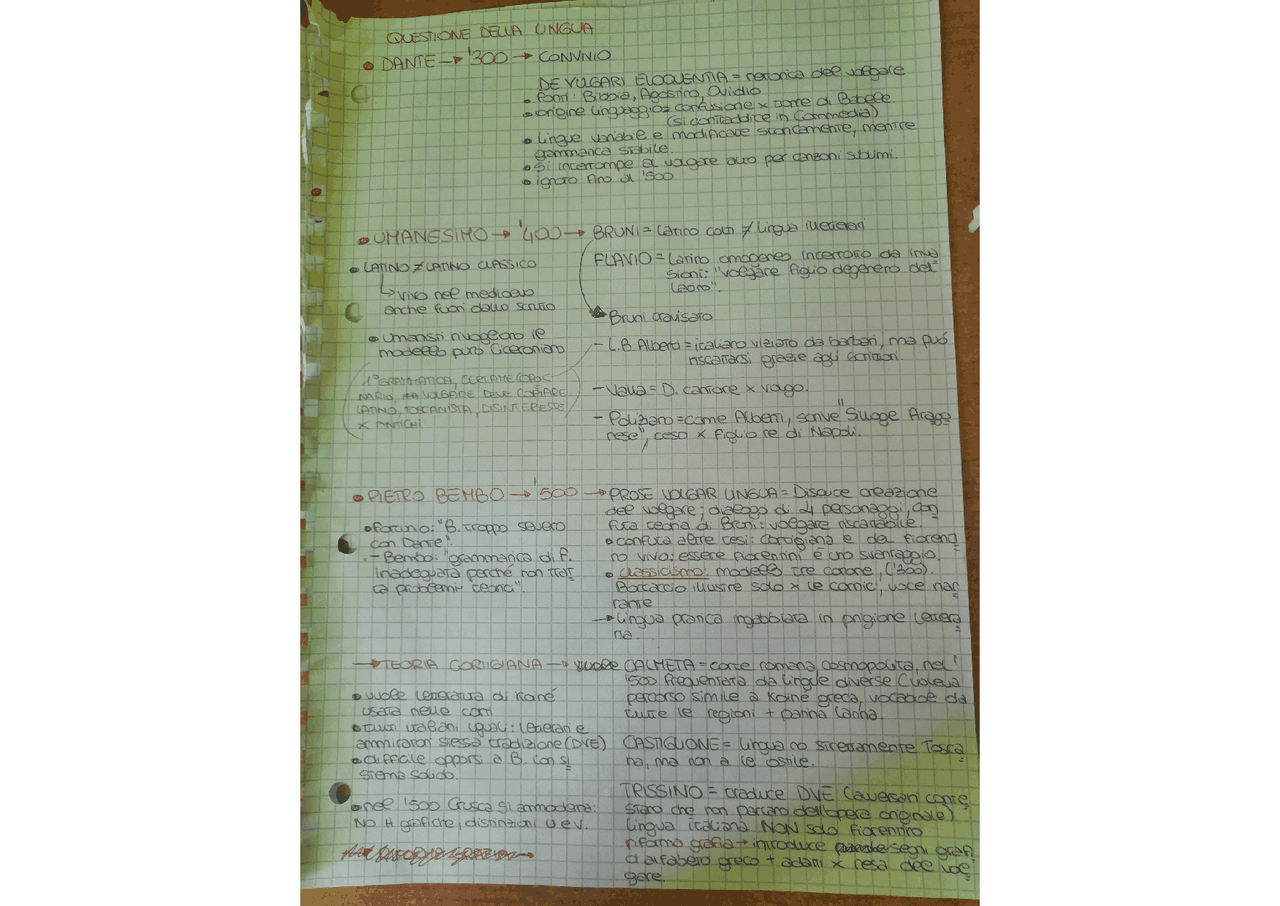 QUESTIONE DELLA LINGUA
• DANTE → '300 → CONVIVIO
DE VULGARI ELOQUENTIA = retorica del volgare
• fonti: Bibbia, Agostino, Ovidio
• origine linguaggio = confusione x torre di Babele.
(si contraddice in Commedia)
• Lingue variabili e modificate storicamente, mentre
grammatica stabile.
• si interrompe al volgare aulico per canzoni sublimi.
• ignoto fino al '500
• UMANESIMO → '400 → BRUNI = Latino colti ≠ lingua illetterati
• LATINO ≠ LATINO CLASSICO
↳ vivo nel medioevo
anche fuori dallo scritto
• umanisti rivogliono il
modello puro Ciceroniano
1° GRAMMATICA, CERTAME CORO
NARIO, VOLGARE DEVE COPIARE
LATINO, TOSCANISTA, DISINTERESSE
X ANTICHI
FLAVIO = Latino omogeneo interrotto da inva
sioni: "volgare figlio degenero del
latino".
Bruni travisato
- L.B. Alberti = italiano viziato da barbari, ma può
riscattarsi grazie agli scrittori.
- Valla = D. cantore x volgo.
- Poliziano = come Alberti, scrive "Silloge Arago
nese", x figlio re di Napoli.
• PIETRO BEMBO → '500 → PROSE VOLGAR LINGUA = Discute creazione
del volgare; dialogo di 4 personaggi, con
futa teoria di Bruni: volgare riscattabile.
• confuta altre tesi: cortigiana e del fioren
no vivo: essere fiorentini è uno svantaggio.
• classicismo: modello tre corone, ('300).
Boccaccio illustre solo x le cornici, voce nar
rante
→ Lingua pratica ingabbiata in prigione lettera
ria
• Fortunio: "B. troppo severo
con Dante".
- Bembo: "grammatica di F.
inadeguata perché non trat
ta problemi teorici".
→ TEORIA CORTIGIANA → CALMETA = corte romana, cosmopolita, nel
'500 frequentata da lingue diverse (voleva
percorso simile a Koiné greca, vocaboli da
tutte le regioni + patina latina.
• vuole letteratura di Koiné
usata nelle corti
• tutti italiani uguali: letterari e
ammiratori stessa tradizione (DVE)
• difficile opporsi a B. con si
stema solido.
• nel '500 Crusca si ammoderna:
NO H grafiche, distinzioni u e v.
CASTIGLIONE = Lingua no strettamente Tosca
na, ma non a le ostile.
TRISSINO = traduce DVE (avversari conte
stano che non parlano dell'opera originale)
Lingua italiana NON solo fiorentino
riforma grafia → introduce segni grafi
ci alfabeto greco + adatti x resa del vol
gare